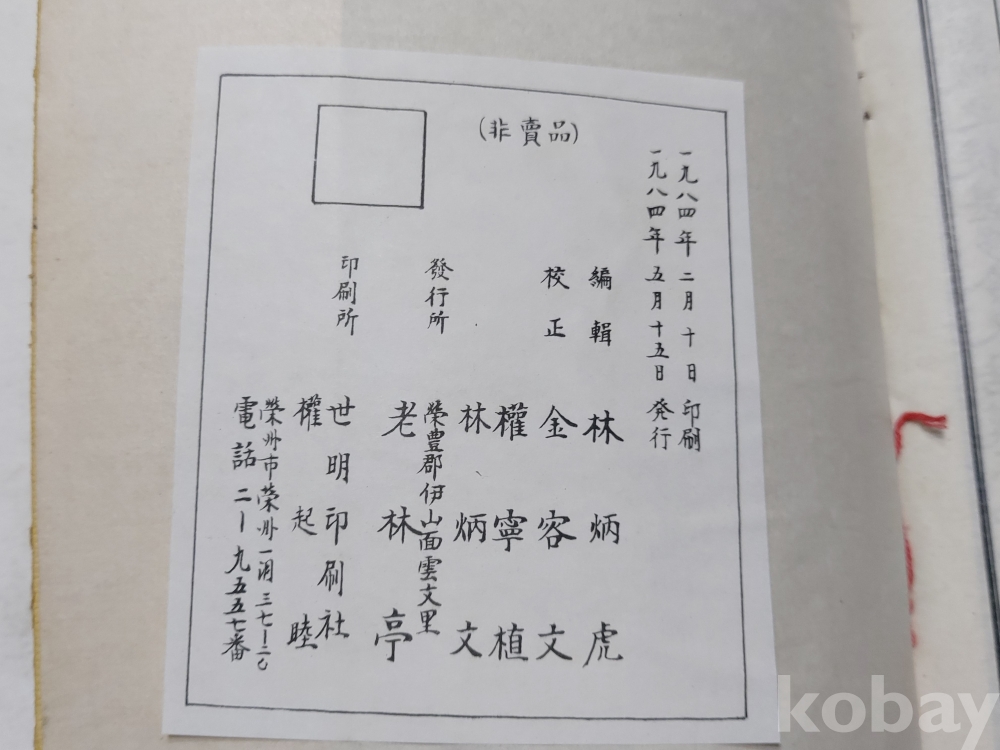 一九八四年 二月 十 日 印刷
一九八四年 五月 十五日 発行
(非賣品)
編輯 林炳虎
校正 金容文
權寧植
林炳文
發行所 榮豊郡伊山面雲文里
老林亭
印刷所 世明印刷社
權起睦
榮州市榮州一洞 三七ー二〇
電話 二ー九五五七番
kobay